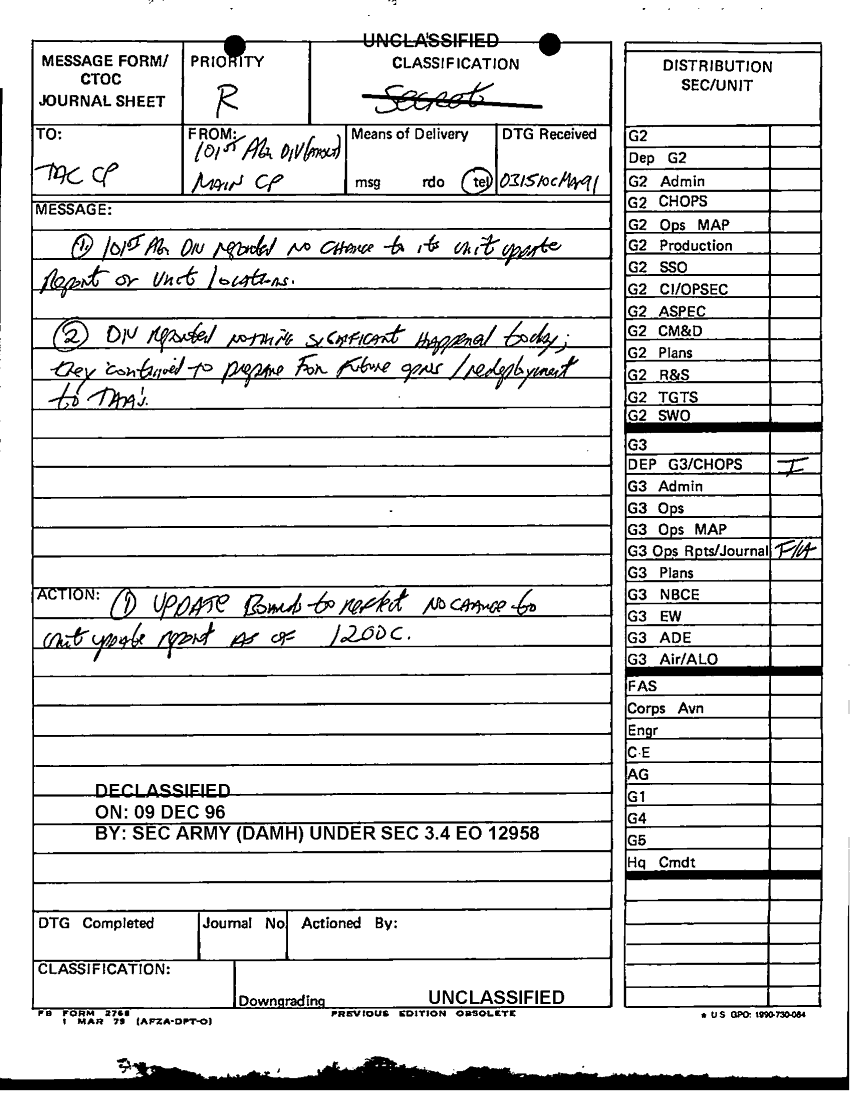 UNCLASSIFIED
MESSAGE FORM/
CTOC
JOURNAL SHEET
PRIORITY
R
CLASSIFICATION
Secret
TO:
TAC CP
FROM:
101ST Abn DIV (AASLT)
MAIN CP
Means of Delivery
msg rdo tel
DTG Received
031510CMar91
MESSAGE:
① 101ST Abn DIV reported no change to its unit update
Report or Unit locations.
② DIV reported nothing significant happened today;
they continued to prepare for future opns / redeployment
to TAA's.
ACTION: ① UPDATE Boards to reflect no change to
unit update report as of 1200C.
DECLASSIFIED
ON: 09 DEC 96
BY: SEC ARMY (DAMH) UNDER SEC 3.4 EO 12958
DTG Completed
Journal No
Actioned By:
CLASSIFICATION:
Downgrading
UNCLASSIFIED
FB FORM 2768
1 MAR 79 (AFZA-DPT-O)
PREVIOUS EDITION OBSOLETE
DISTRIBUTION
SEC/UNIT
G2
Dep G2
G2 Admin
G2 CHOPS
G2 Ops MAP
G2 Production
G2 SSO
G2 CI/OPSEC
G2 ASPEC
G2 CM&D
G2 Plans
G2 R&S
G2 TGTS
G2 SWO
G3
DEP G3/CHOPS I
G3 Admin
G3 Ops
G3 Ops MAP
G3 Ops Rpts/Journal F/A
G3 Plans
G3 NBCE
G3 EW
G3 ADE
G3 Air/ALO
FAS
Corps Avn
Engr
C-E
AG
G1
G4
G5
Hq Cmdt
★ U S GPO: 1990-730-084